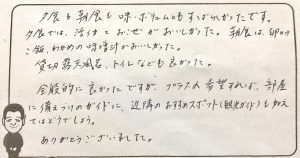 夕食も朝食も味・ボリュームともすばらしかったです。
夕食では、活イカとおこぜがおいしかった。朝食は、卵かけ
ご飯、わかめの味噌汁がおいしかった。
貸切露天風呂、トイレなども良かった。
全般的に良かったですが、プラスα希望すれば、部屋
に備えつけのガイドに、近隣のおすすめスポット(観光ガイド)も加え
てはどうでしょう。
ありがとうございました。